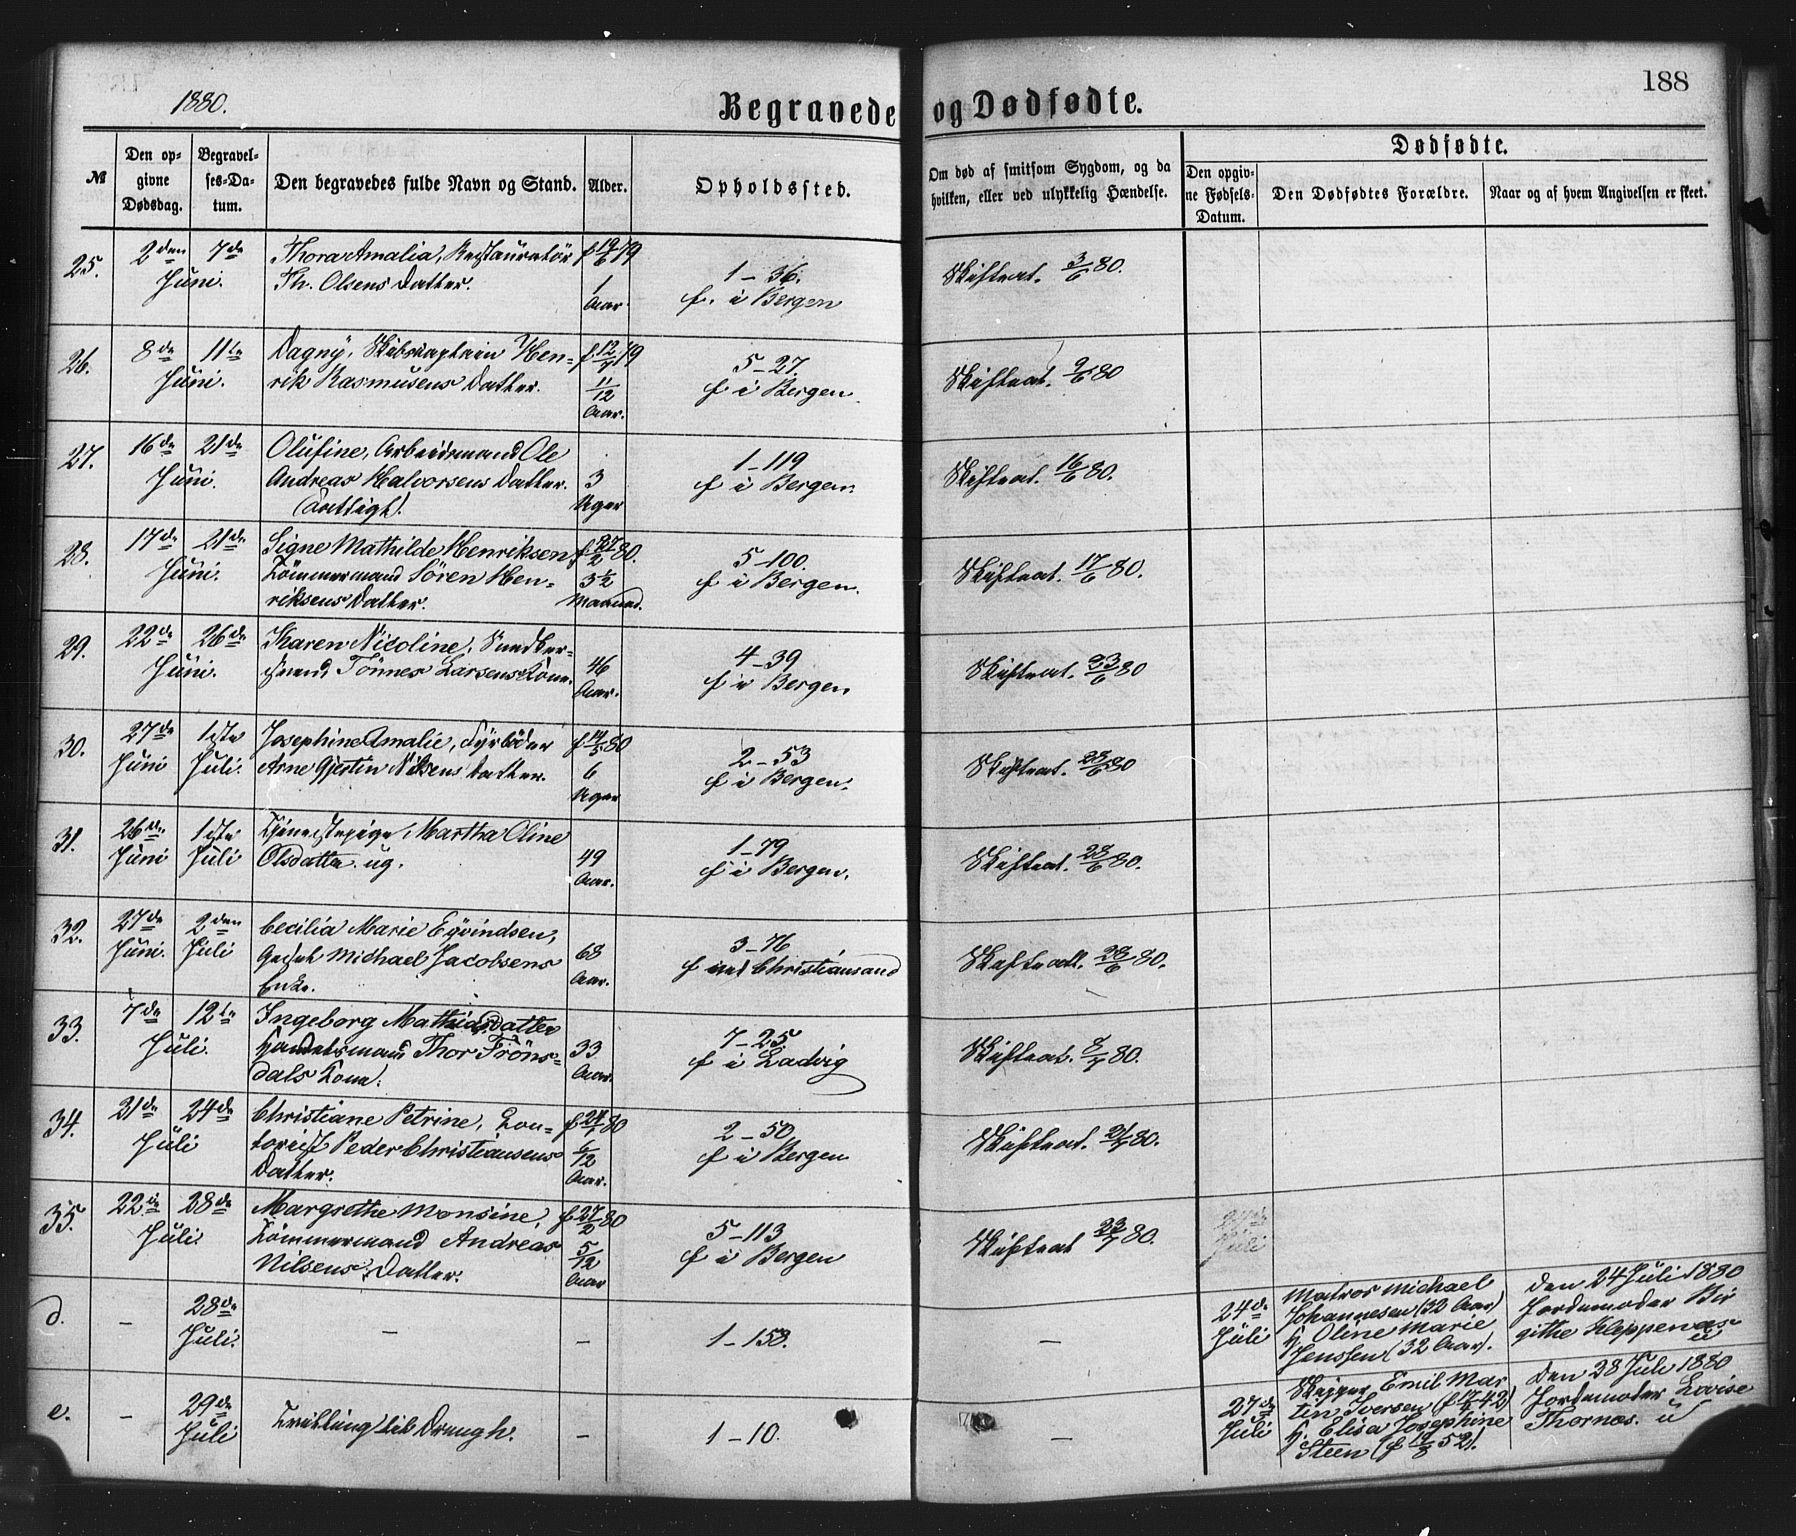 188
1880.
Begravede og Dødfødte.
№
Den op-
givne
Dødsdag.
Begravel-
ses-Da-
tum.
Den begravedes fulde Navn og Stand.
Alder.
Opholdssted.
Om død af smitsom Sygdom, og da
hvilken, eller ved ulykkelig Hændelse.
Dødfødte.
Den opgiv-
ne Fødsels-
Datum.
Den Dødfødtes Forældre.
Naar og af hvem Angivelsen er skeet.
25.
2den
Juni.
7de
Thora Amalia, Restauratør
Th. Olsens Datter.
f 19/6 79
1
Aar.
1-36.
f. i Bergen
Skifteat. 3/6 80.
26.
8de
Juni.
11te
Dagny, Skibskaptain Hen-
rik Rasmusens Datter.
f 12/7 79
11/12
Aar.
5-27.
f i Bergen.
Skifteat. 9/6 80
27.
16de
Juni.
21de
Olufine, Arbeidsmand Ole
Andreas Halvorsens Datter.
(Fattigh).
3
Uger
1-119
f i Bergen.
Skifteat. 16/6 80.
28.
17de
Juni.
21de
Signe Mathilde Henriksen,
Tømmermand Søren Hen-
riksens Datter.
f 27/2 80.
3½
Maaned.
5-100.
f i Bergen.
Skifteat. 17/6 80.
29.
22de
Juni.
26de
Karen Nicoline,
Tönnes Larsens Kone.
46
Aar.
4-39
f i Bergen
Skifteat. 23/6 80
30.
27de
Juni
1ste
Juli.
Josephine Amalie, Fyrbøder
Arne Gjertin Nilsens Datter.
f 14/5 80
6
Uger
2-53
f i Bergen.
Skifteat. 28/6 80
31.
26de
Juni
1ste
Juli
Tjenestepige Martha Oline
Olsdatter ug.
49
Aar.
1-79
f i Bergen.
Skifteat. 28/6 80.
32.
27de
Juni.
2den
Juli
Cecilia Marie Eyvindsen,
Michael Jacobsens
Enke.
68
Aar.
3-76
f ved Christiansand
Skifteatt. 28/6 80.
33.
7de
Juli.
12te
Ingeborg Mathiasdatter
Handelsmand Thor Fröns-
dals Kone.
33
Aar.
7-25
f i Ladvig
Skifteat. 8/7 80.
34.
21de
Juli
24de
Christiane Petrine, Kon-
torist Peder Christiansens
Datter.
f 24/1 80
6/12
Aar.
2-50
f i Bergen
Skifteat. 21/7 80.
35.
22de
Juli.
28de
Margrethe Monsine,
Tømmermand Andreas
Nilsens Datter.
f 27/2 80
5/12
Aar
5-113
f i Bergen
Skifteat 23/7 80.
27de
Juli
d.
-
28de
Juli.
-
-
1-153.
-
24de
Juli
Matros Michael
Johannesen (32 Aar)
H. Oline Marie
Jenssen (32 Aar).
Den 24 Juli 1880
Jordemoder Bir
githe Kleppenæs
e.
-
29de
Juli
Trilling til
-
1-10.
-
27de
Juli
Skipper Emil Mar
tin Iversen (f 17/6 42)
H. Elisa Josephine
Steen (f 19/8 52).
Den 28 Juli 1880
Jordemoder Lovise
Thornæs.